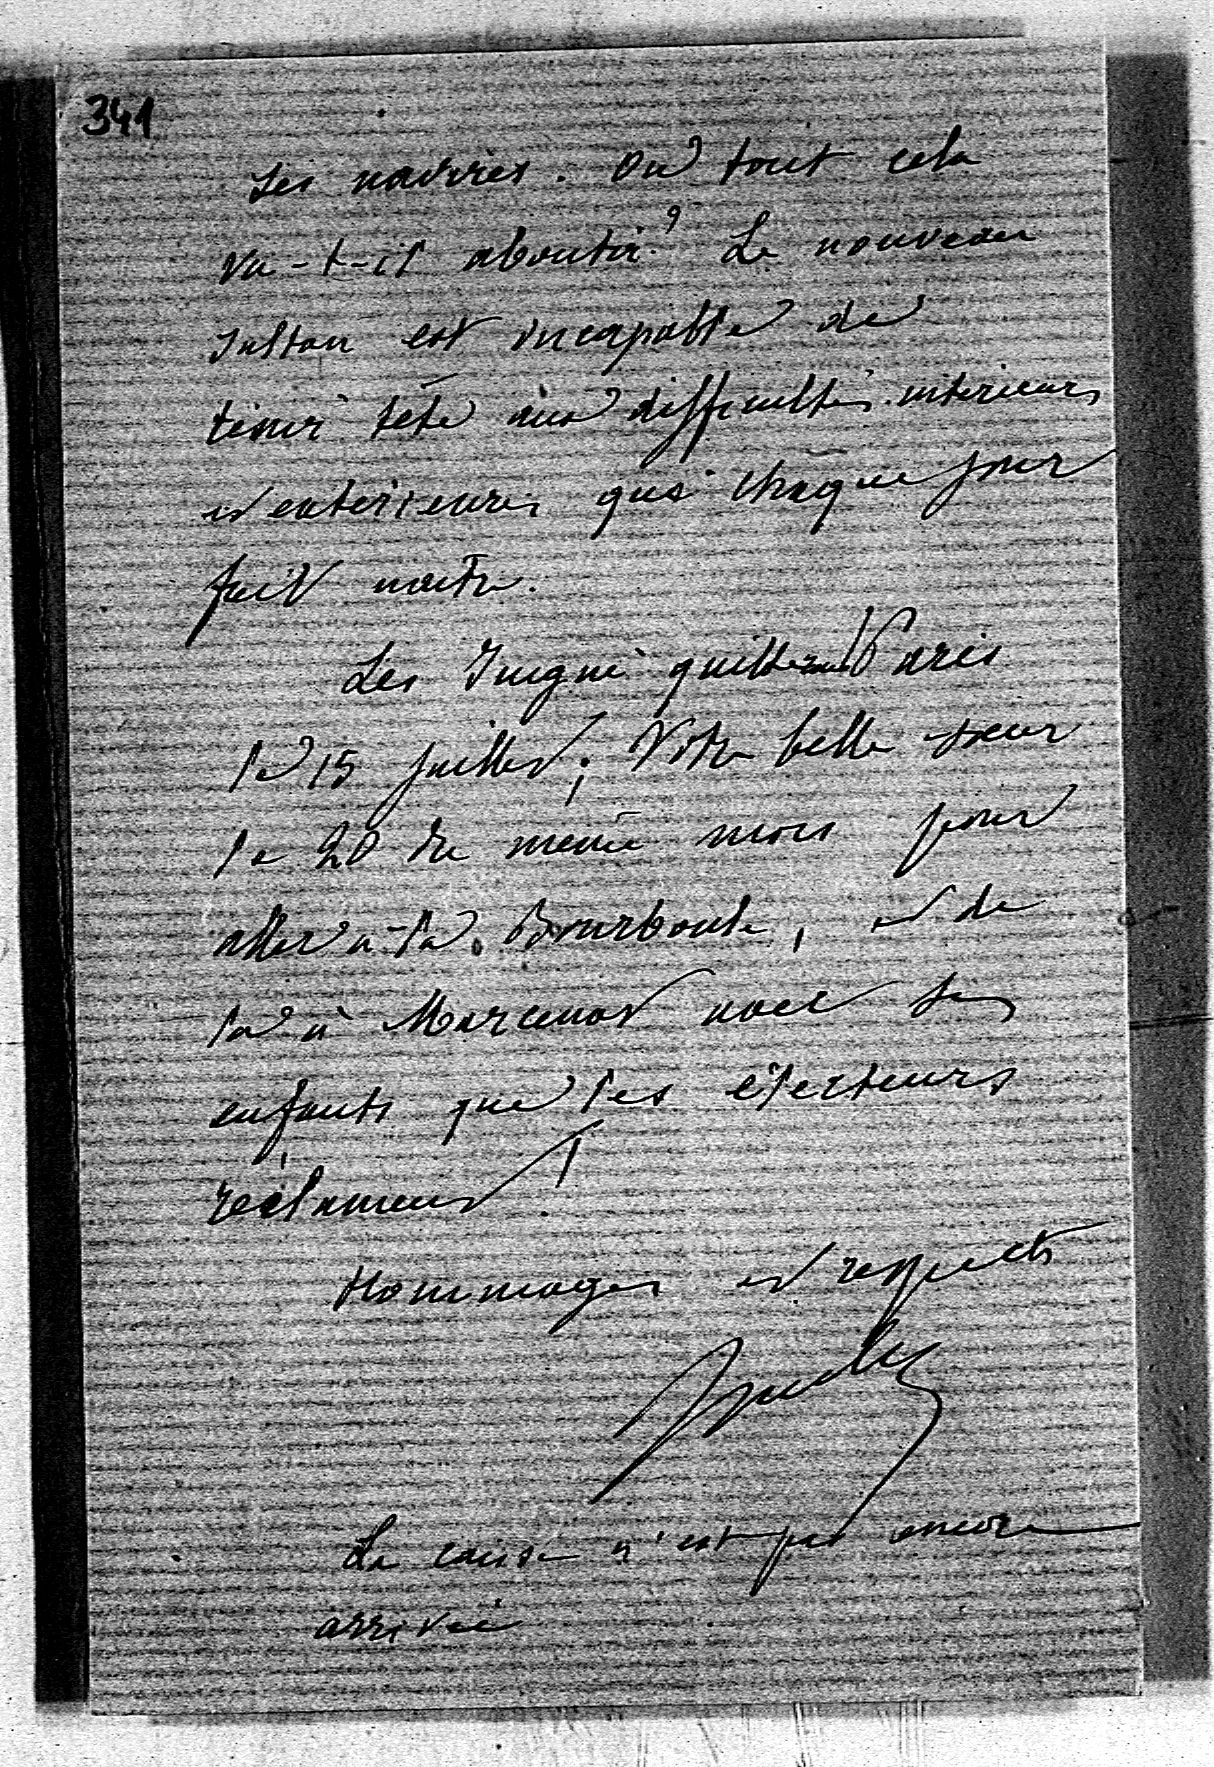 341
ses navires. Où tout cela
va-t-il aboutir? Le nouveau
sultan est incapable de
tenir tête aux difficultés intérieures
et extérieures que chaque jour
fait naître.
Les Juigné quitteront Paris
le 15 juillet; Votre belle soeur
le 20 du même mois pour
aller à la Bourboule, et de
là à Marcenat avec ses
enfants que les électeurs
réclament!
Hommages et respects
La caisse n'est pas encore
arrivée